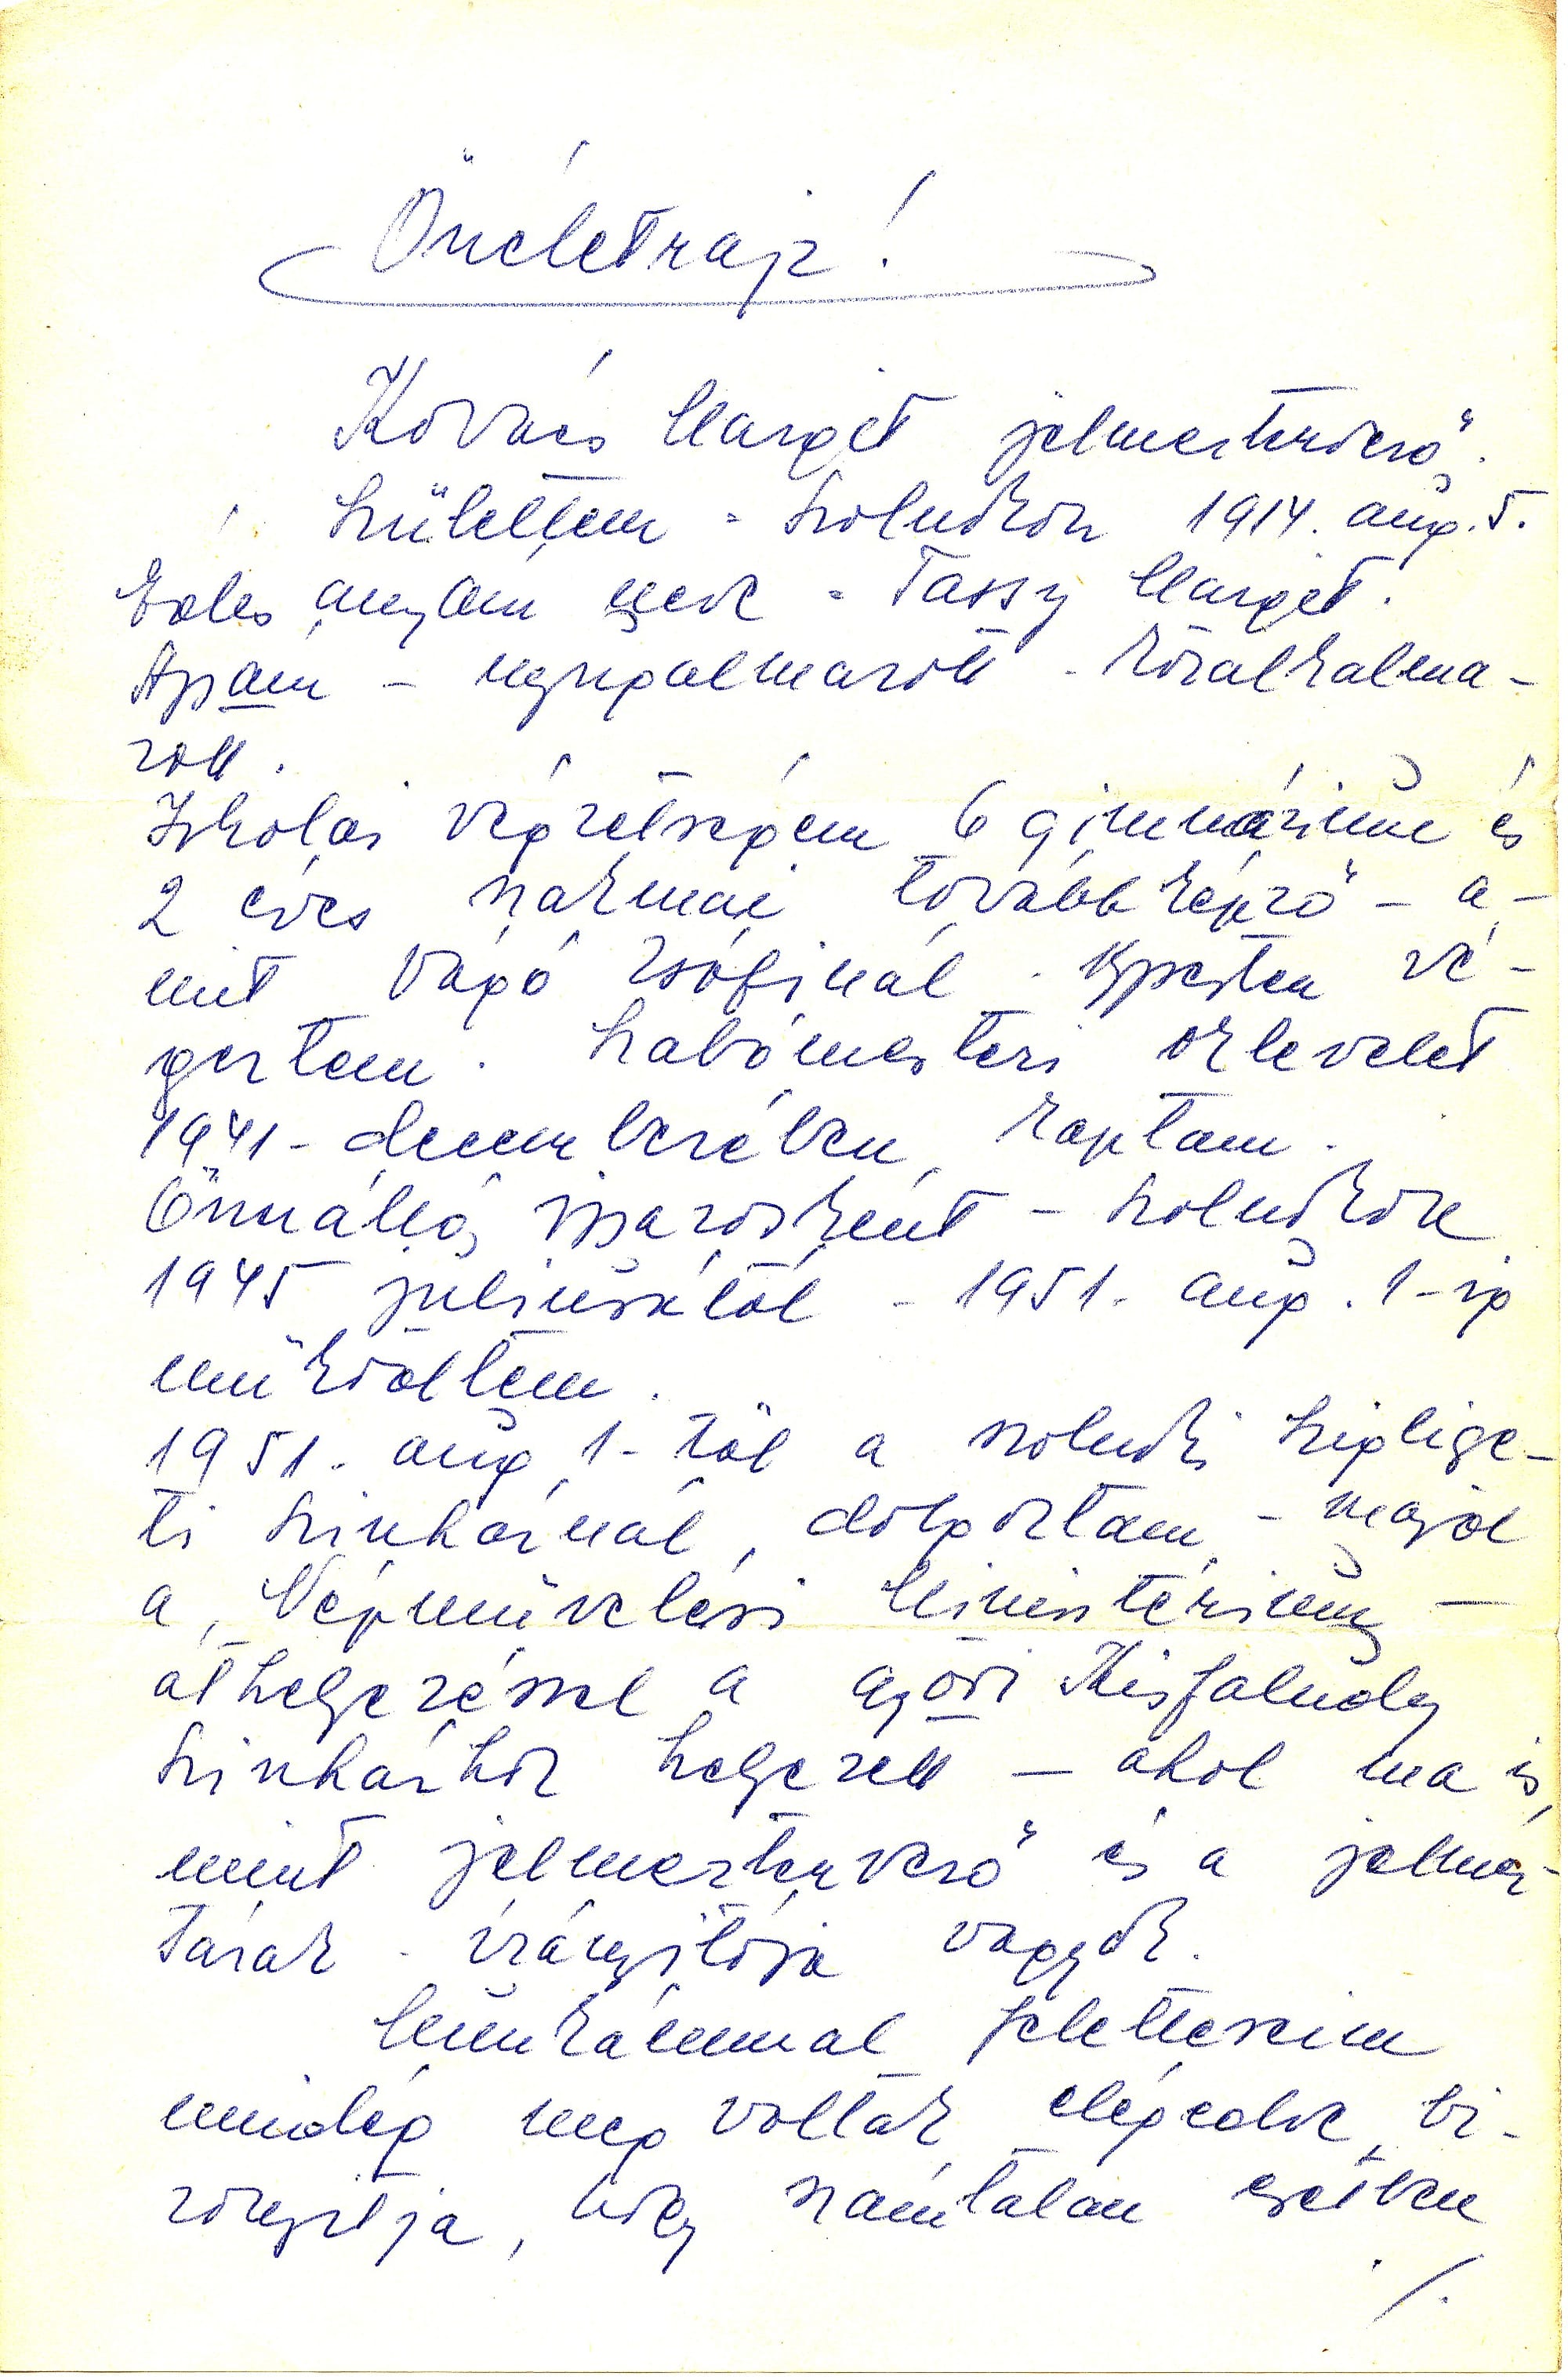 Önéletrajz!
Kovács Margit jelmeztervező.
Születtem - Szolnokon 1914. aug. 5.
Édes anyám neve - Tassy Margit.
Apám - nyugalmazott - közalkalma-
zott.
Iskolai végzetségem 6 gimnázium és
2 éves szakmai továbbképző - a-
mit Vágó Zsófinál - Bpesten vé-
geztem. Szabómesteri oklevelet
1941 - decemberében kaptam.
Önnálló, iparosként - Szolnokon
1945 juliusától - 1951. aug. 1-ig
működtem.
1951. aug 1-től a szolnoki Sziglige-
ti Szinháznál, dolgoztam, - majd
a, Népművelési Minisztérium -
áthelyezéssel a győri Kisfaludy
Szinházhoz helyezett - ahol ma is,
mint jelmeztervező és a jelmez-
tárak - irányitója vagyok.
Munkámmal feletteseim
mindég meg voltak elégedve, bi-
zonyitja, hogy számtalan esetben
./.